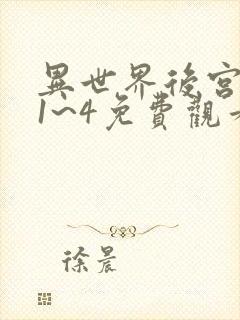 異世界後宮
1~4免費觀
徐晨